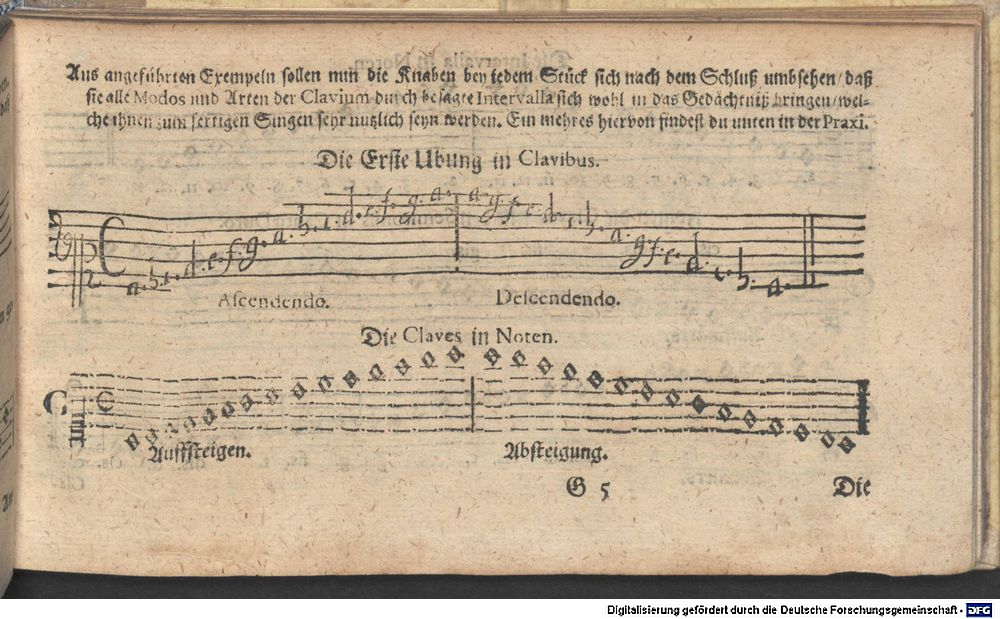 Aus angeführten Exempeln sollen nun die Knaben bey jedem Stück sich nach dem Schluß umbsehen/daß
sie alle Modos und Arten der Clavium durch besagte Intervalla sich wohl in das Gedächtniß bringen/wel-
che ihnen zum fertigen Singen sehr nützlich seyn werden. Ein mehres hiervon findest du unten in der Praxi.
Die Erste Ubung in Clavibus.
a. h. c. d. e. f. g. a. h. c. d. e. f. g. a. a. g. f. e. d. c. h. a. g. f. e. d. c. h. a.
Ascendendo. Descendendo.
Die Claves in Noten.
Auffsteigen. Absteigung.
G 5 Die
Digitalisierung gefördert durch die Deutsche Forschungsgemeinschaft - DFG